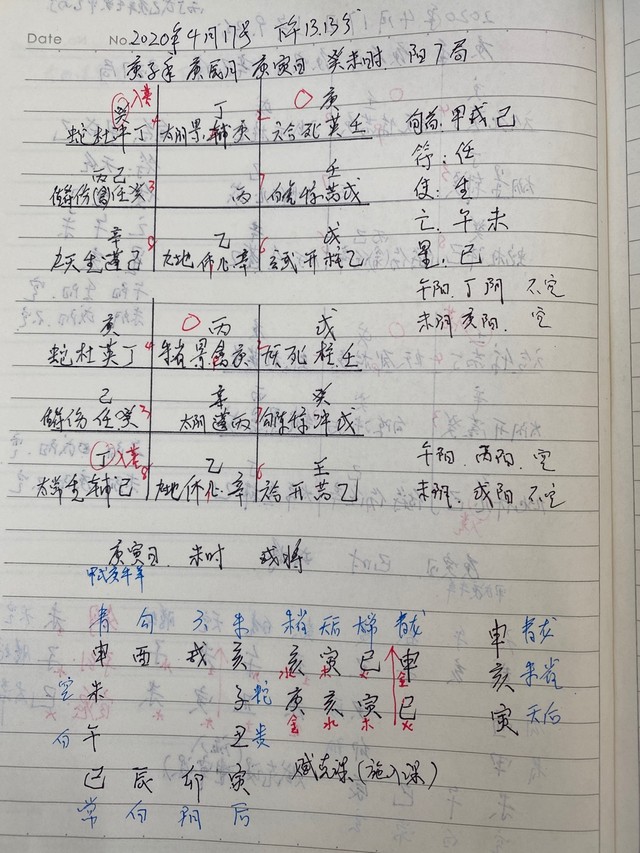 Date No. 2020年4月17号 下午13.13分
庚子年 庚辰月 庚寅日 癸未时. 阳7局
癸 入墓 丁 ○ 庚
蛇杜 丁 4 太阴景辅庚 2 六合死英壬 旬首:甲戌己
符:任
丙己 壬
伤 任癸 3 丙 7 白虎惊芮戊 使:生
亡:午未
辛 乙 戊
九天生蓬己 8 九地休心辛 6 玄武开柱乙 星:巳
午阳.丁阴 不空
未阴 亥阳. 空
○ 丙 戊
蛇杜英丁 4 朱雀景禽庚 2 死柱壬
己 辛 癸
伤任癸 3 太阴蓬丙 7 勾陈惊冲戊
丁 入墓 乙 壬 午阳.丙阳.空
太常生辅己 8 九地休心辛 6 六合开芮乙 未阴.戌阳 不空
庚寅日. 未时 戌将
甲戌 年
青 勾 六 朱 朱雀 天后 太常 青龙
申 酉 戌 亥 亥 寅 巳 申 申 青龙
空 未 子 蛇 庚 亥 寅 巳 亥 朱雀
白 午 丑 贵 金 水 木 火 寅 天后
巳 辰 卯 寅
常 白 阴 后